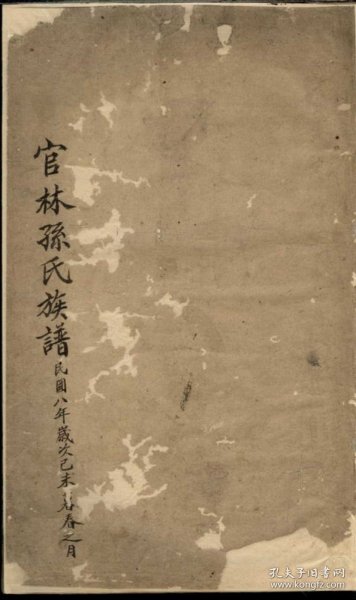 官林孫氏族譜
民國八年歲次己未暮春之月
孔夫子旧书网